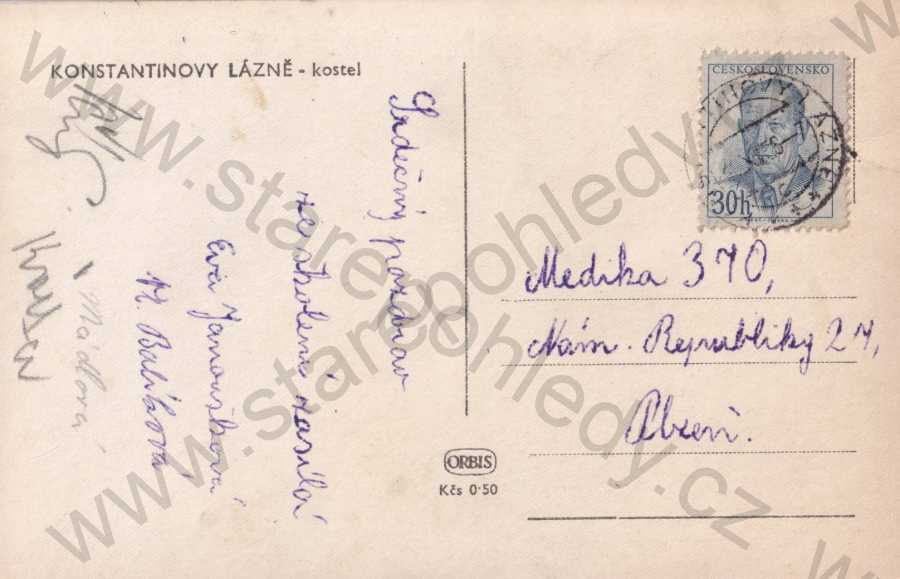 KONSTANTINOVY LÁZNĚ - kostel
Srdečný pozdrav
ze školení zasílá
Eva Janoušková
M. Balíková
Mádlová
ČESKOSLOVENSKO
30h
Medika 370,
Nám. Republiky 27,
Plzeň.
ORBIS
Kčs 0·50
www.starepohledy.cz